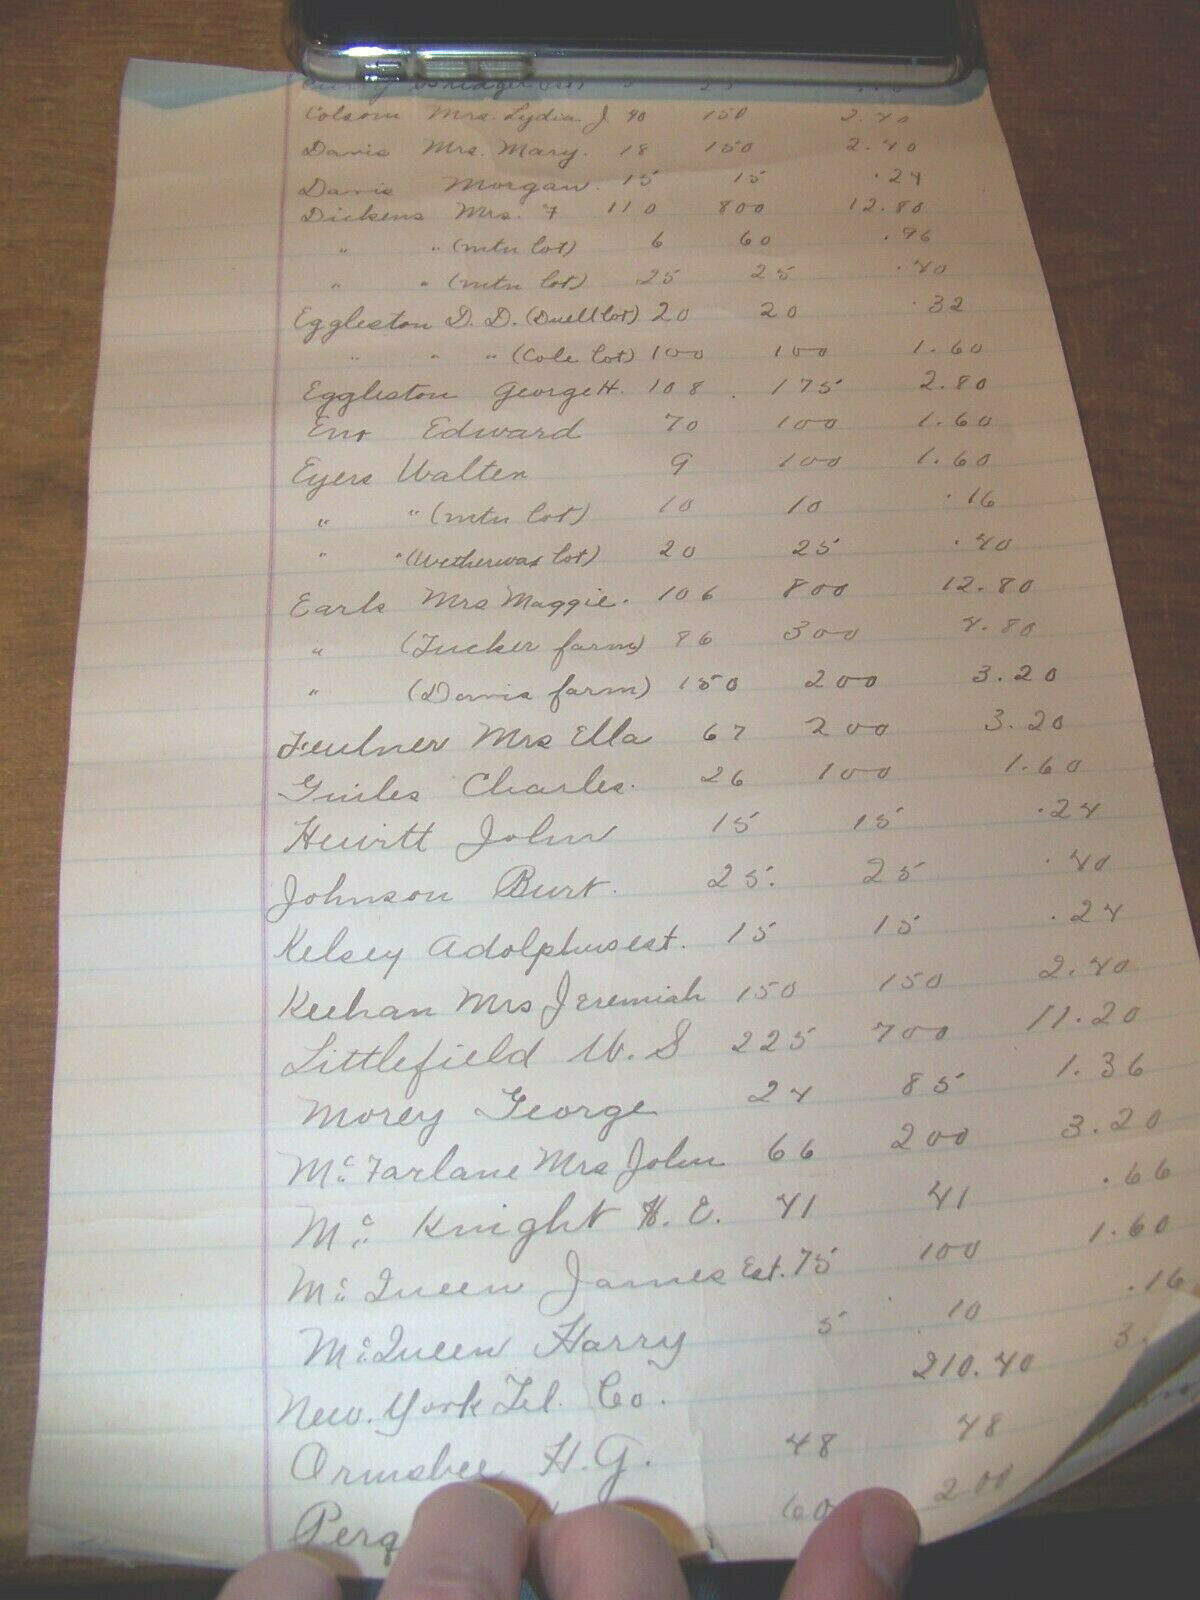 Colsom Mrs. Lydia J. 90 150 2.40
Davis Mrs. Mary. 18 150 2.40
Davis Morgan. 15 15 .24
Dickens Mrs. F 110 800 12.80
" " (mtn lot) 6 60 .96
" " (mtn lot) 25 25 .40
Eggleston D. D. (Duell lot) 20 20 .32
" " " (Cole lot) 100 100 1.60
Eggleston George H. 108 175 2.80
Eno Edward 70 100 1.60
Eyers Walter 9 100 1.60
" " (mtn lot) 10 10 .16
" " (Wetherwax lot) 20 25 .40
Earls Mrs Maggie. 106 800 12.80
" (Tucker farm) 96 300 4.80
" (Davis farm) 150 200 3.20
Feulner Mrs Ella 67 200 3.20
Guiles Charles. 26 100 1.60
Hewitt John 15 15 .24
Johnson Burt. 25. 25 .40
Kelsey Adolphus est. 15 15 .24
Keehan Mrs Jeremiah 150 150 2.40
Littlefield W. S 225 700 11.20
Morey George 24 85 1.36
McFarlane Mrs John 66 200 3.20
Mc Knight H. E. 41 41 .66
Mc Queen James Est. 75 100 1.60
McQueen Harry 5 10 .16
New. York Tel. Co. 210.40 3.
Ormsbee H. G. 48 48
Perq 60 200